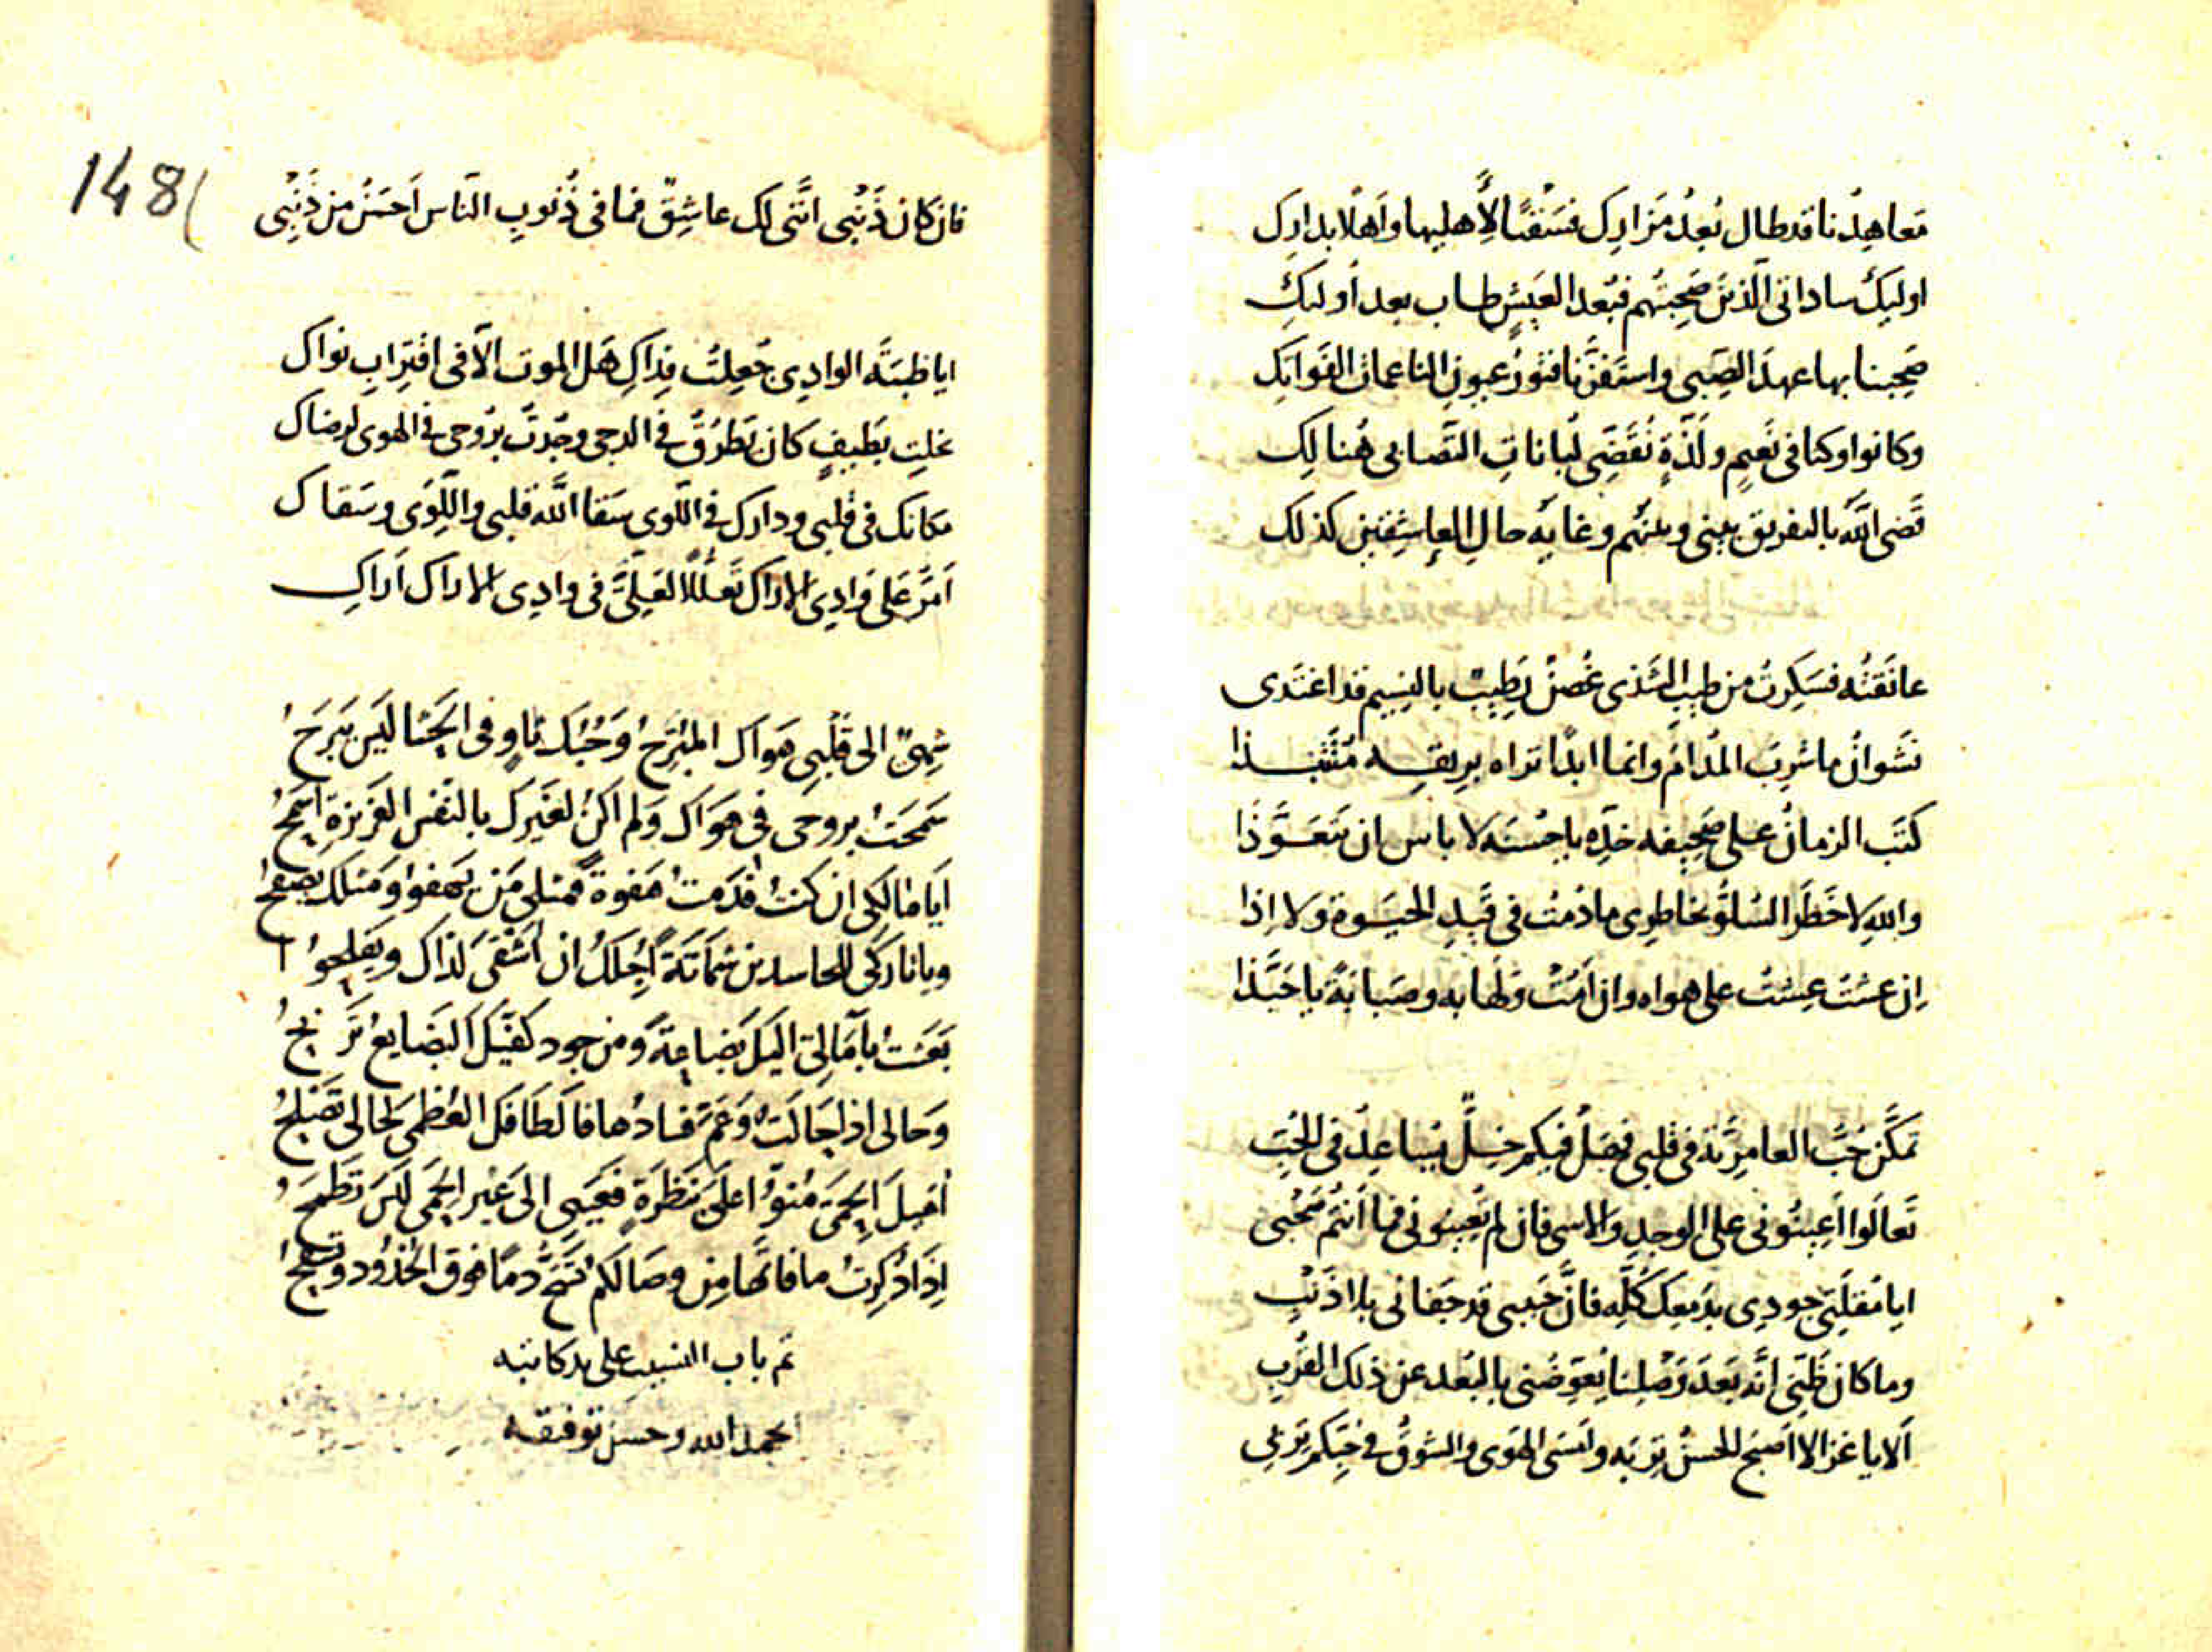 معاهدنا قد طال بُعدُ مَزارِك فسَقيًا لأهليها وأهلًا بدارِك
اوليك ساداتى الذينَ صَحِبتُهم فبُعدا لعَيشٍ طاب بعد أوليك
صَحِبنا بها عهدَ الصِبى واستَفزَّنا فتورُ عيونِ الناعمات الفَواتِك
وكانوا وكنا فى نَعيمٍ ولَذّةٍ نُقَضِّى لُباناتِ التَّصابى هُنالِك
قَضى الله بالتفريق بينى وبينهم وغايةُ حالِ العاشِقينَ كذلك
عانَقتُه فسَكِرتُ من طيبِ الشَذى غُصنٌ رَطِيبٌ بالنسيم قد اغتَدى
نَشوانُ ما شرِبَ المُدامَ وانما ابدًا تراه بريقِه مُتَنَبِذا
كتَب الزمانُ على صَحِيفه خدِّه يا حُسنَه لا باس ان يَتَعَوَّذا
واللهِ لا خَطَر السُلوُّ بخاطِرى ما دُمتُ فى قَيدِ الحيَوة ولا إذا
إن عشتُ عِشتُ على هواه وان اَمُتْ وَلهًا به وصَبابَةً يا حَبَّذا
تمكَّن حُبُّ العامِريّة فى قلبى فهَل فيكم خِلٌّ يُساعِدُ فى الحُبّ
تَعالَوا اَعِينُونى على الوجدِ والاسى فان لم تُعِينونى فما اَنتُم صَحْبى
ايا مُقلَتِى جودِى بدَمعِك كُلِّه فانَّ حَبيبى قد جَفانى بلا ذَنْبِ
وما كان ظَنِّى انَّه بَعدَ وَصْلِنا يُعَوِّضُنى بالبُعد عن ذلك القُربِ
اَلا يا غزالا اَصبَح الحسنُ تِربَه واَمسَى الهَوى والشوقُ فى حُبِّكم تِربى
148
فان كان ذَنْبى انَّنى لك عاشِقٌ فما فى ذُنوبِ النّاس اَحسَنُ من ذَنْبِى
ايا ظبيَةَ الوادِى جُعِلتُ فِداكِ هَل الموت الّا فى اقتِرابِ نواك
بخلتِ بطَيفٍ كان يَطرُقُ فى الدجى وجُدتُ بُروحى فى الهوى لرضاك
مكانك فى قلبى ودارك فى اللّوى سَقا اللَّه قلبى واللِّوَى وسَقاك
اَمُرُّ عَلى وَادِى الاراك تَعَلُّلًا لعَلِّىَ فى وادِى الاراك اَراكِ
شِهىٌّ الى قَلْبِى هَواك المُبَرِّحُ وَحُبُّكَ ثاوٍ فى الحَشا لَيسَ يَبرَحُ
سَمَحتُ بروحى فى هَوَاك وَلم اكن لغَيرِك بالنَفسِ العَزيزةِ اَسمَحُ
اَيا مالكى ان كنتُ قدَّمتُ هَفوةً فمثلى مَن يَهفوا ومَثلك يَصفحُ
ويا تاركى للحاسدين شَماتَةً اُجِلُّكَ ان اَشقَى لذاك ويَفلحوا
بَعَثتُ بآمَالِى اليكَ بَضاعةً ومن جود كفَّيكَ البَضايعُ تَربحُ
وَحالى اذ لجَالَت وَعَمَّ فسادُها فالطَافكَ العُظمى لحالى تُصْلحُ
اُهَيلَ الحِمَى مُنوُّا علَىَّ بنَظرَةٍ فعَينِى الى غَيرِ الحِمَى لَيسَ تَطمَحُ
إذَا ذَكَرتُ ما فاتَها مِن وصَالكم تَسُحُّ دمًا فوق الخدُود وتسفحُ
تم باب النسيب على يد كاتبه
بحمد الله وحسن توفيقه